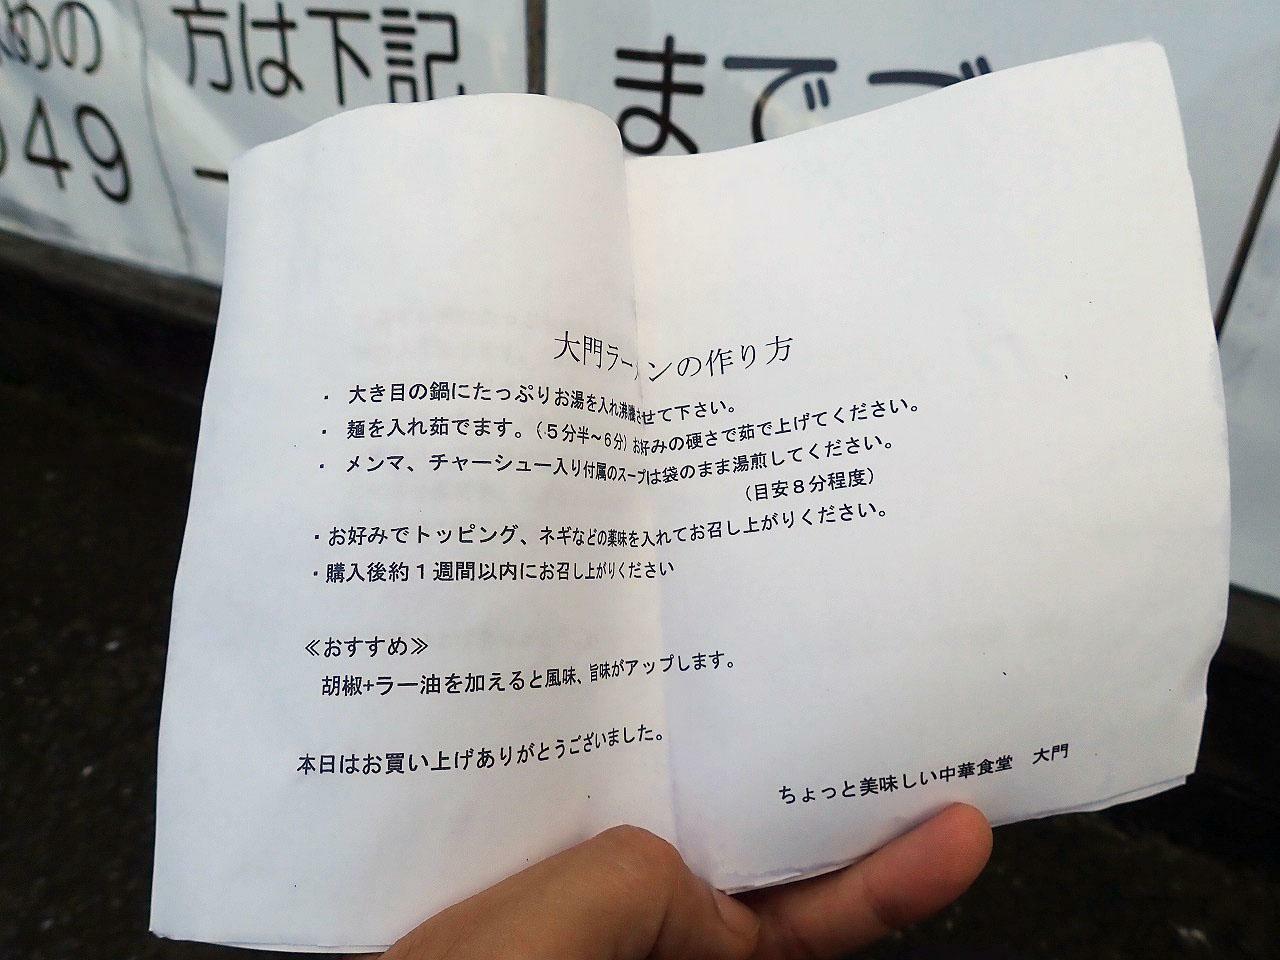 めの
方は下記
まで
949
大門ラーメンの作り方
・ 大き目の鍋にたっぷりお湯を入れ沸騰させて下さい。
・ 麺を入れ茹でます。（５分半～６分）お好みの硬さで茹で上げてください。
・ メンマ、チャーシュー入り付属のスープは袋のまま湯煎してください。
（目安８分程度）
・お好みでトッピング、ネギなどの薬味を入れてお召し上がりください。
・購入後約１週間以内にお召し上がりください
≪おすすめ≫
胡椒+ラー油を加えると風味、旨味がアップします。
本日はお買い上げありがとうございました。
ちょっと美味しい中華食堂　大門